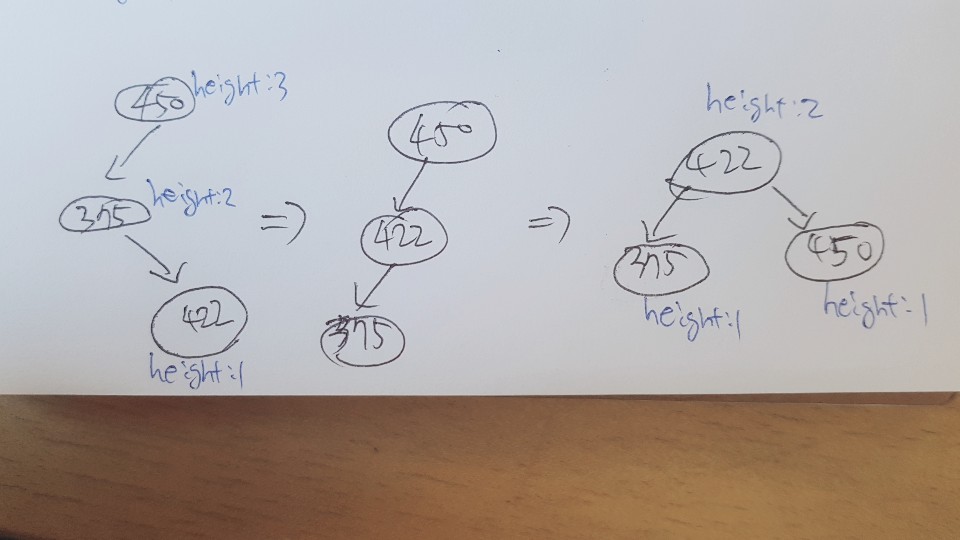 450 height:3
375 height:2
422
height:1
=>
450
422
375
=>
height:2
422
375
450
height:1
height:1